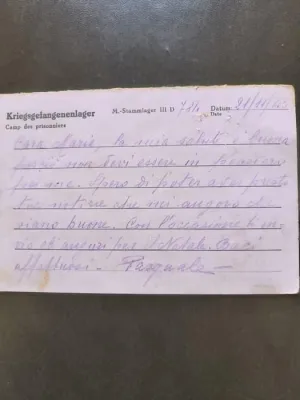 Kriegsgefangenenlager
Camp des prisonniers
M.-Stammlager III D
Datum:
Date
Cara Maria, la mia salute è buona
perciò non devi essere in pensiero
per me. Spero di poter aver presto
tue notizie che mi auguro che
siano buone. Con l'occasione ti in-
vio gli auguri per il Natale. Baci
affettuosi - Pasquale -